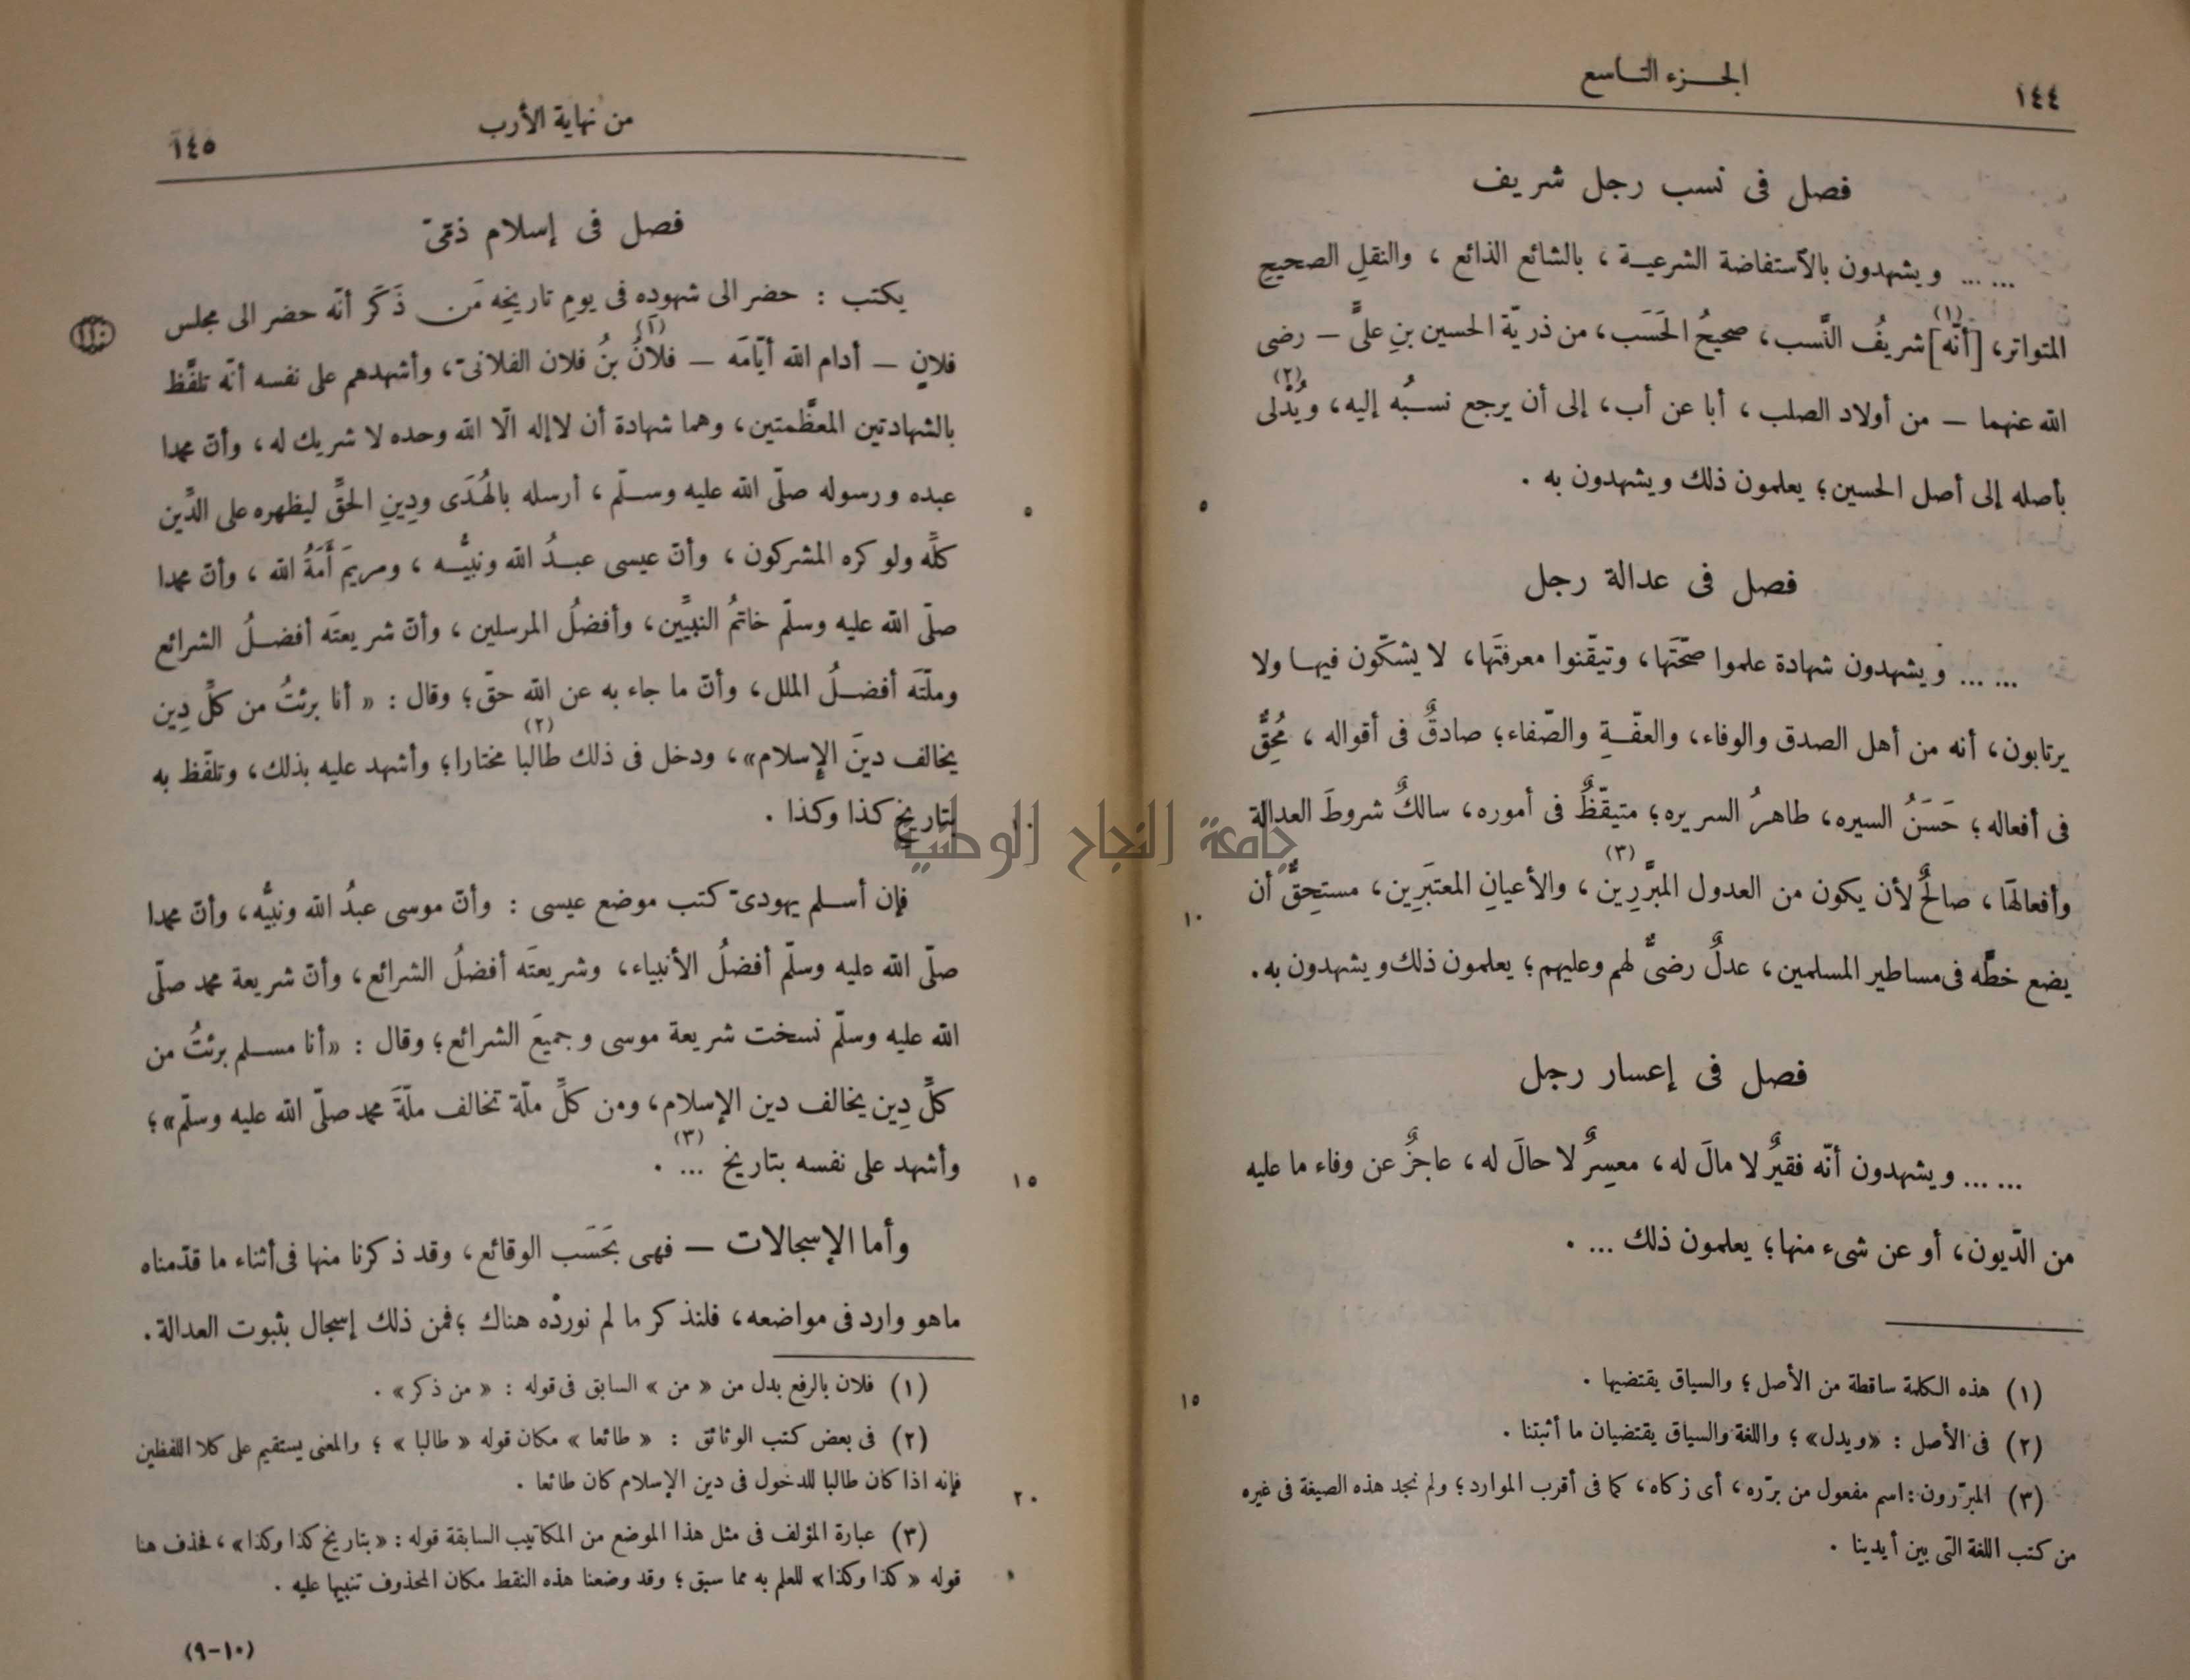 ١٤٤
الجـــزء التـاسع
فصل فى نسب رجل شريف
... ... ويشهدون بالاستفاضة الشرعيـة ، بالشائع الذائع ، والنقلِ الصحيحِ
المتواتر، [أنّه](١) شريفُ النَّسب، صحيحُ الحَسَب، من ذريّة الحسين بنِ علىٍّ — رضى
الله عنهما — من أولاد الصلب ، أبا عن أب، إلى أن يرجع نسبُه إليه، ويُدْلى(٢)
بأصله إلى أصل الحسين؛ يعلمون ذلك ويشهدون به .
٥
فصل فى عدالة رجل
... ... ويشهدون شهادة علموا صحّتَها، وتيقّنوا معرفتَها، لا يشكّون فيهـا ولا
يرتابون، أنه من أهل الصدق والوفاء، والعفّـةِ والصّفاء؛ صادقٌ فى أقواله ، مُحِقٌّ
فى أفعاله ؛ حَسَنُ السيره، طاهرُ السريره؛ متيقّظٌ فى أموره، سالكٌ شروطَ العدالة
وأفعالَها ، صالحٌ لأن يكون من العدول المبرَّرِين(٣) ، والأعيانِ المعتبَرِين، مستحِقٌّ أن
١٠
يضع خطَّه فى مساطير المسلمين، عدلٌ رضىٌّ لهم وعليهم؛ يعلمون ذلك ويشهدون به.
فصل فى إعسار رجل
... ... ويشهدون أنّه فقيرٌ لا مالَ له، معسِرٌ لا حالَ له، عاجزٌ عن وفاء ما عليه
من الدّيون، أو عن شىء منها؛ يعلمون ذلك ... .
(١) هذه الكلمة ساقطة من الأصل؛ والسياق يقتضيها .
١٥
(٢) فى الأصل : «ويدل»؛ واللغة والسياق يقتضيان ما أثبتنا .
(٣) المبرّرون: اسم مفعول من برّره، أى زكاه، كما فى أقرب الموارد؛ ولم نجد هذه الصيغة فى غيره
من كتب اللغة التى بين أيدينا .
من نهاية الأرب
١٤٥
فصل فى إسلام ذمّىّ
يكتب : حضر الى شهودِه فى يومِ تاريخِه مَن ذَكَر أنّه حضر الى مجلس
فلانٍ — أدام الله أيّامَه — فلانُ(١) بنُ فلان الفلانىّ، وأشهدهم على نفسه أنّه تلفَّظ
بالشهادتين المعظَّمتين، وهما شهادة أن لا إله الّا الله وحده لا شريك له، وأنّ محمدا
عبده ورسوله صلّى الله عليه وسـلّم ، أرسله بالهُدَى ودِينِ الحقِّ ليظهره على الدِّين
٥
كلِّه ولو كره المشركون ، وأنّ عيسى عبـدُ الله ونبيُّـه ، ومريمَ أَمَةُ الله ، وأنّ محمدا
صلّى الله عليه وسلّم خاتمُ النبيِّين، وأفضلُ المرسلين ، وأنّ شريعتَه أفضـلُ الشرائع
وملّتَه أفضـلُ الملل، وأنّ ما جاء به عن الله حقّ؛ وقال : « أنا برئتُ من كلِّ دِين
يخالف دينَ الإسلام»، ودخل فى ذلك طالبا(٢) مختارا؛ وأشهد عليه بذلك، وتلفّظ به
بتاريخِ كذا وكذا .
١٠
جامعة النجاح الوطنية
فإن أسـلم يهودىّ كتب موضع عيسى : وأنّ موسى عبدُ الله ونبيُّه، وأنّ محمدا
صلّى الله عليه وسلّم أفضلُ الأنبياء، وشريعتَه أفضلُ الشرائع، وأنّ شريعة محمد صلّى
الله عليه وسلّم نسخت شريعة موسى وجميعَ الشرائع؛ وقال : «أنا مسـلم برئتُ من
كلِّ دِين يخالف دين الإسلام، ومن كلِّ ملّة تخالف ملّةَ محمد صلّى الله عليه وسلّم»؛
وأشهد على نفسه بتاريخ ...(٣) .
١٥
وأما الإسجالات — فهى بحَسَب الوقائع، وقد ذكرنا منها فى أثناء ما قدّمناه
ما هو وارد فى مواضعه، فلنذكر ما لم نورِدْه هناك ؛ فمن ذلك إسجال بثبوت العدالة.
(١) فلان بالرفع بدل من « من » السابق فى قوله : « من ذكر» .
(٢) فى بعض كتب الوثائق : « طائعا » مكان قوله « طالبا » ؛ والمعنى يستقيم على كلا اللفظين
فإنه اذا كان طالبا للدخول فى دين الإسلام كان طائعا .
٢٠
(٣) عبارة المؤلف فى مثل هذا الموضع من المكاتيب السابقة قوله : «بتاريخ كذا وكذا»، فحذف هنا
قوله « كذا وكذا» للعلم به مما سبق؛ وقد وضعنا هذه النقط مكان المحذوف تنبيها عليه .
(٩-١٠)